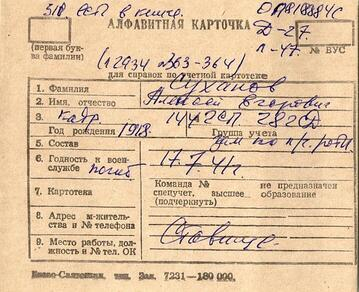 518 ОСП в книге. ОП818884с
АЛФАВИТНАЯ КАРТОЧКА
Д-27.
(первая бук- л-47. № ВУС
ва фамилии)
(12934 л363-364)
для справок по учетной картотеке
1. Фамилия Суханов
2. Имя, отчество Алексей Егорович
3. Кадр. 1442СП 282СД
Год рождения 1918. Группа учета
5. Состав
6. Годность к воен- 17.7.41г.
службе погиб
7. Картотека Команда № не предназначен
спецучет, высшее образование
(подчеркнуть)
8. Адрес м-житель-
ства и № телефона
9. Место работы, дол-
жность и № тел. ОК
Зак. 7231—180 000.